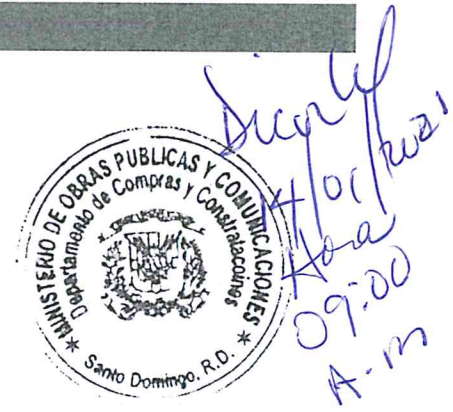 MINISTERIO DE OBRAS PUBLICAS Y COMUNICACIONES
Departamento de Compras y Constratacoines
Santo Domingo, R.D.
14/01/2021
Hora
09:00
A.m